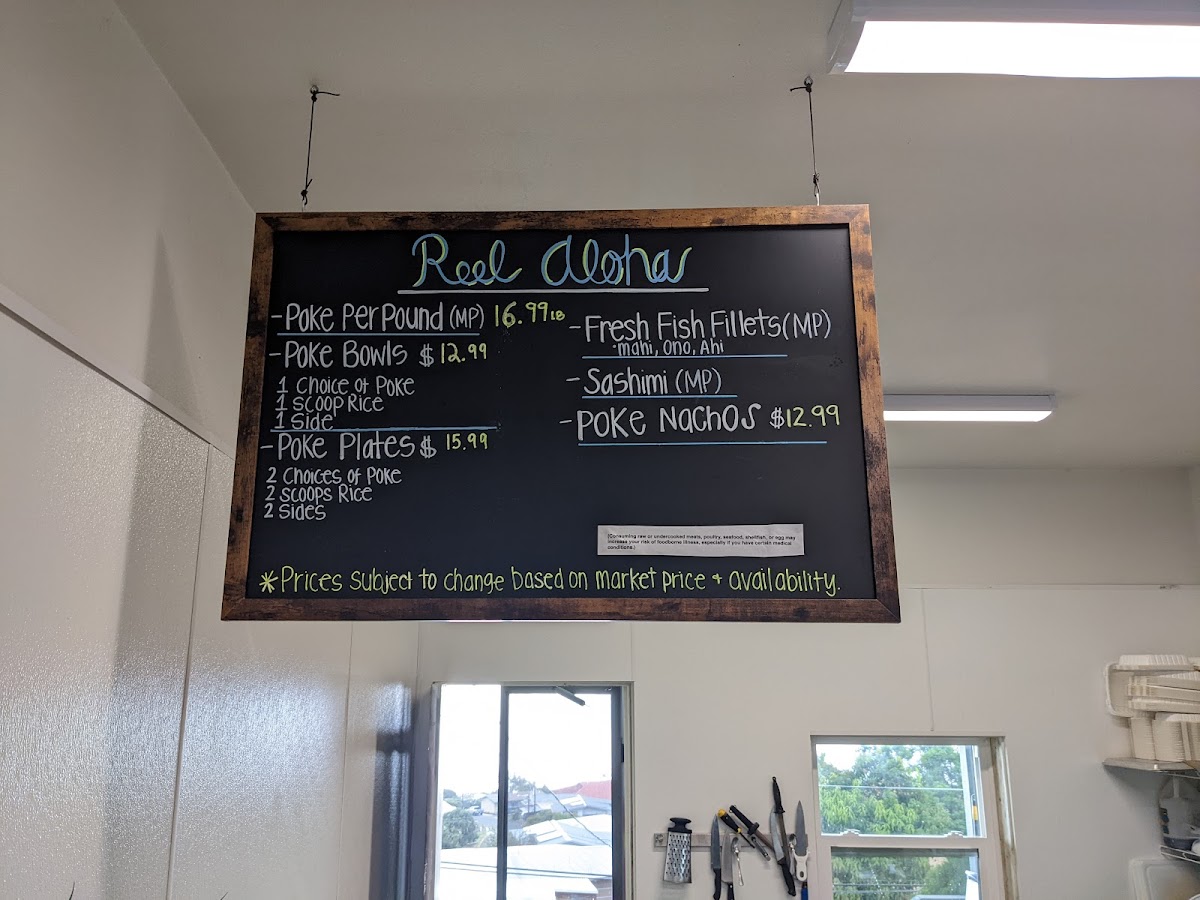 Reel Aloha
- Poke Per Pound (MP) 16.99 LB
- Poke Bowls $ 12.99
1 Choice of Poke
1 Scoop Rice
1 Side
- Poke Plates $ 15.99
2 Choices of Poke
2 Scoops Rice
2 Sides
- Fresh Fish Fillets (MP)
·mahi, Ono, Ahi
- Sashimi (MP)
- Poke Nachos $12.99
(Consuming raw or undercooked meats, poultry, seafood, shellfish, or egg may
increase your risk of foodborne illness, especially if you have certain medical
conditions.)
*Prices subject to change based on market price + availability.